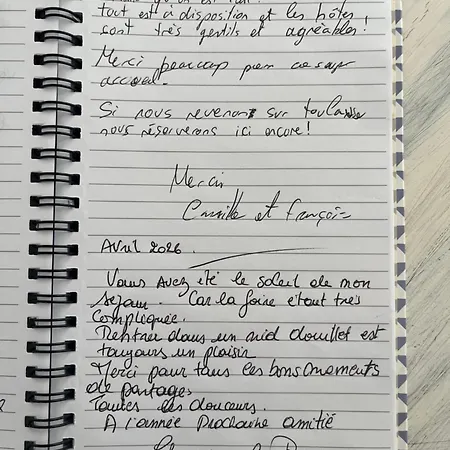 tout est à disposition et les hôtes
sont très gentils et agréables !
Merci beaucoup pour ce super
accueil.
Si nous revenons sur Toulouse
nous réserverons ici encore !
Merci
Camille et François
Avril 2026.
Vous avez été le soleil de mon
séjour. Car la foire était très
compliquée.
Rentrer dans un nid douillet est
toujours un plaisir
Merci pour tous ces bons moments
de partages
Toutes ces douceurs.
A l'année prochaine amitié